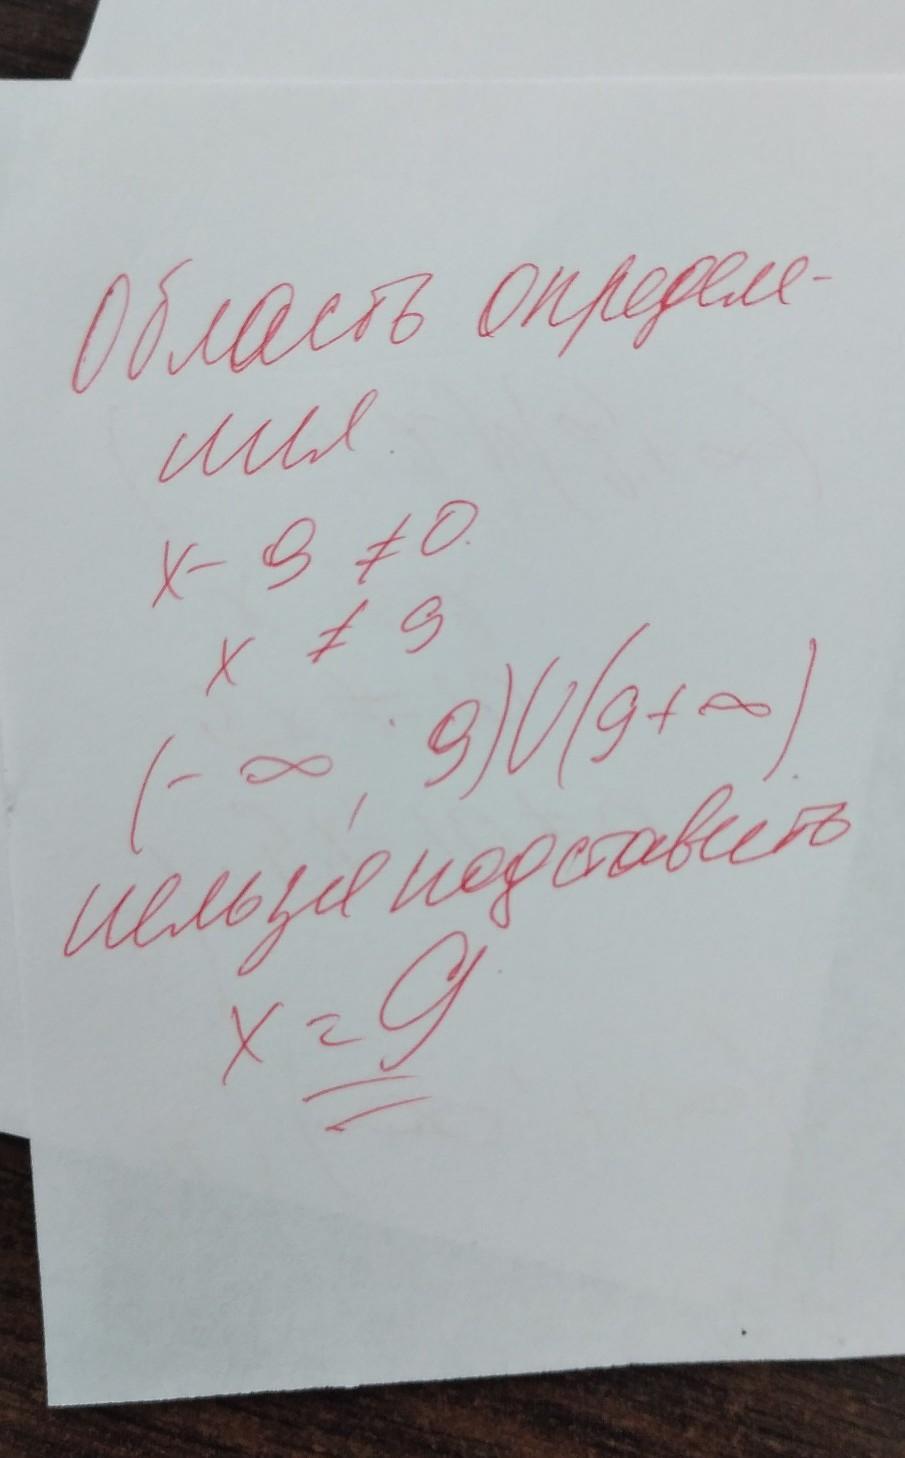 Область определе-
ния.
x - 9 ≠ 0.
x ≠ 9
(- ∞, 9)U(9 + ∞).
нельзя подставить
x = 9